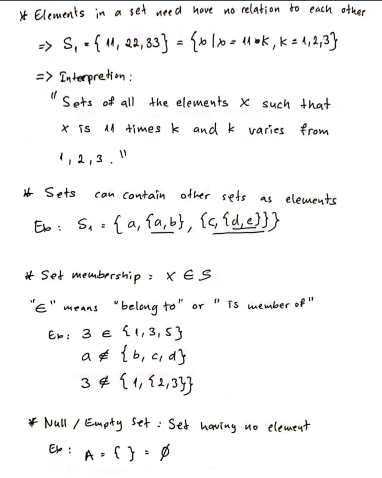 * Elements in a set need have no relation to each other
=> S₁ = { 11, 22, 33 } = { x | x = 11 • k , k = 1, 2, 3 }
=> Interpretion :
" Sets of all the elements x such that
x is 11 times k and k varies from
1, 2, 3 . "
* Sets can contain other sets as elements
Ex : S₁ = { a, {a,b}, {c, {d,e}}}
* Set membership : x ∈ S
"∈" means "belong to" or " is member of "
Ex : 3 ∈ {1, 3, 5}
a ∉ {b, c, d}
3 ∉ {1, {2,3}}
* Null / Empty set : Set having no element
Ex : A = { } = ∅